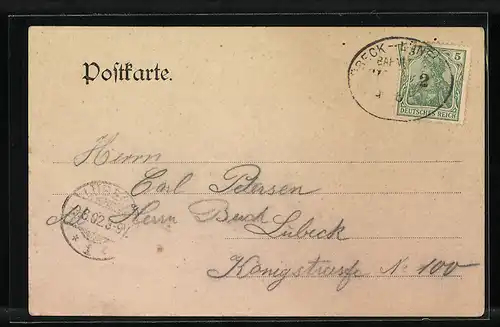 Postkarte.
5
BAHNP
2
DEUTSCHES REICH
Herrn
Carl Petersen
Herrn Buck
Lübeck
Königstrasse No 100